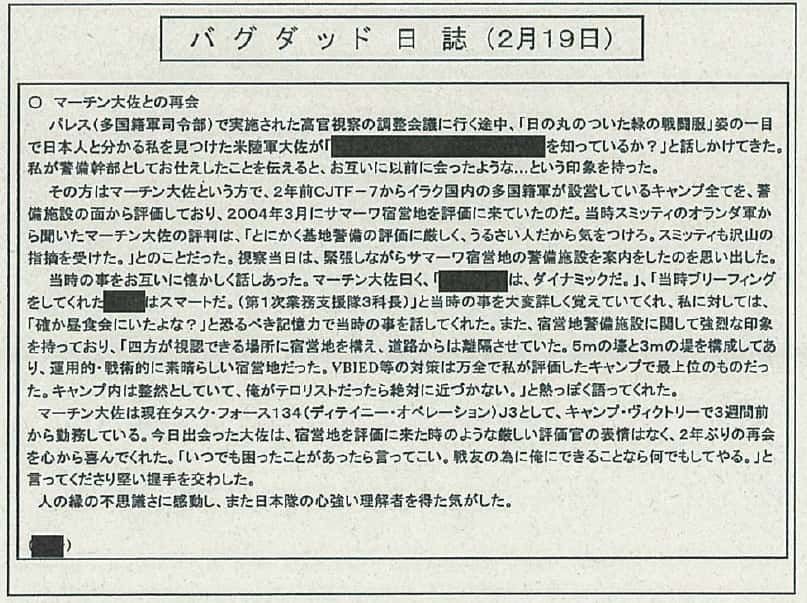 バグダッド日誌（2月19日）
〇　マーチン大佐との再会
パレス（多国籍軍司令部）で実施された高官視察の調整会議に行く途中、「日の丸のついた緑の戦闘服」姿の一目
で日本人と分かる私を見つけた米陸軍大佐が「　　　　を知っているか？」と話しかけてきた。
私が警備幹部としてお仕えしたことを伝えると、お互いに以前に会ったような…という印象を持った。
その方はマーチン大佐という方で、2年前CJTF－7からイラク国内の多国籍軍が設営しているキャンプ全てを、警
備施設の面から評価しており、2004年3月にサマーワ宿営地を評価に来ていたのだ。当時スミッティのオランダ軍か
ら聞いたマーチン大佐の評判は、「とにかく基地警備の評価に厳しく、うるさい人だから気をつけろ。スミッティも沢山の
指摘を受けた。」とのことだった。視察当日は、緊張しながらサマーワ宿営地の警備施設を案内をしたのを思い出した。
当時の事をお互いに懐かしく話しあった。マーチン大佐曰く、「　　　　は、ダイナミックだ。」、「当時ブリーフィング
をしてくれた　　　　はスマートだ。（第1次業務支援隊3科長）」と当時の事を大変詳しく覚えていてくれ、私に対しては、
「確か昼食会にいたよな？」と恐るべき記憶力で当時の事を話してくれた。また、宿営地警備施設に関して強烈な印象
を持っており、「四方が視認できる場所に宿営地を構え、道路からは離隔させていた。5mの壕と3mの堤を構成してあ
り、運用的・戦術的に素晴らしい宿営地だった。VBIED等の対策は万全で私が評価したキャンプで最上位のものだっ
た。キャンプ内は整然としていて、俺がテロリストだったら絶対に近づかない。」と熱っぽく語ってくれた。
マーチン大佐は現在タスク・フォース134（ディテイニー・オペレーション）J3として、キャンプ・ヴィクトリーで3週間前
から勤務している。今日出会った大佐は、宿営地を評価に来た時のような厳しい評価官の表情はなく、2年ぶりの再会
を心から喜んでくれた。「いつでも困ったことがあったら言ってこい。戦友の為に俺にできることなら何でもしてやる。」と
言ってくださり堅い握手を交わした。
人の縁の不思議さに感動し、また日本隊の心強い理解者を得た気がした。
（　　）